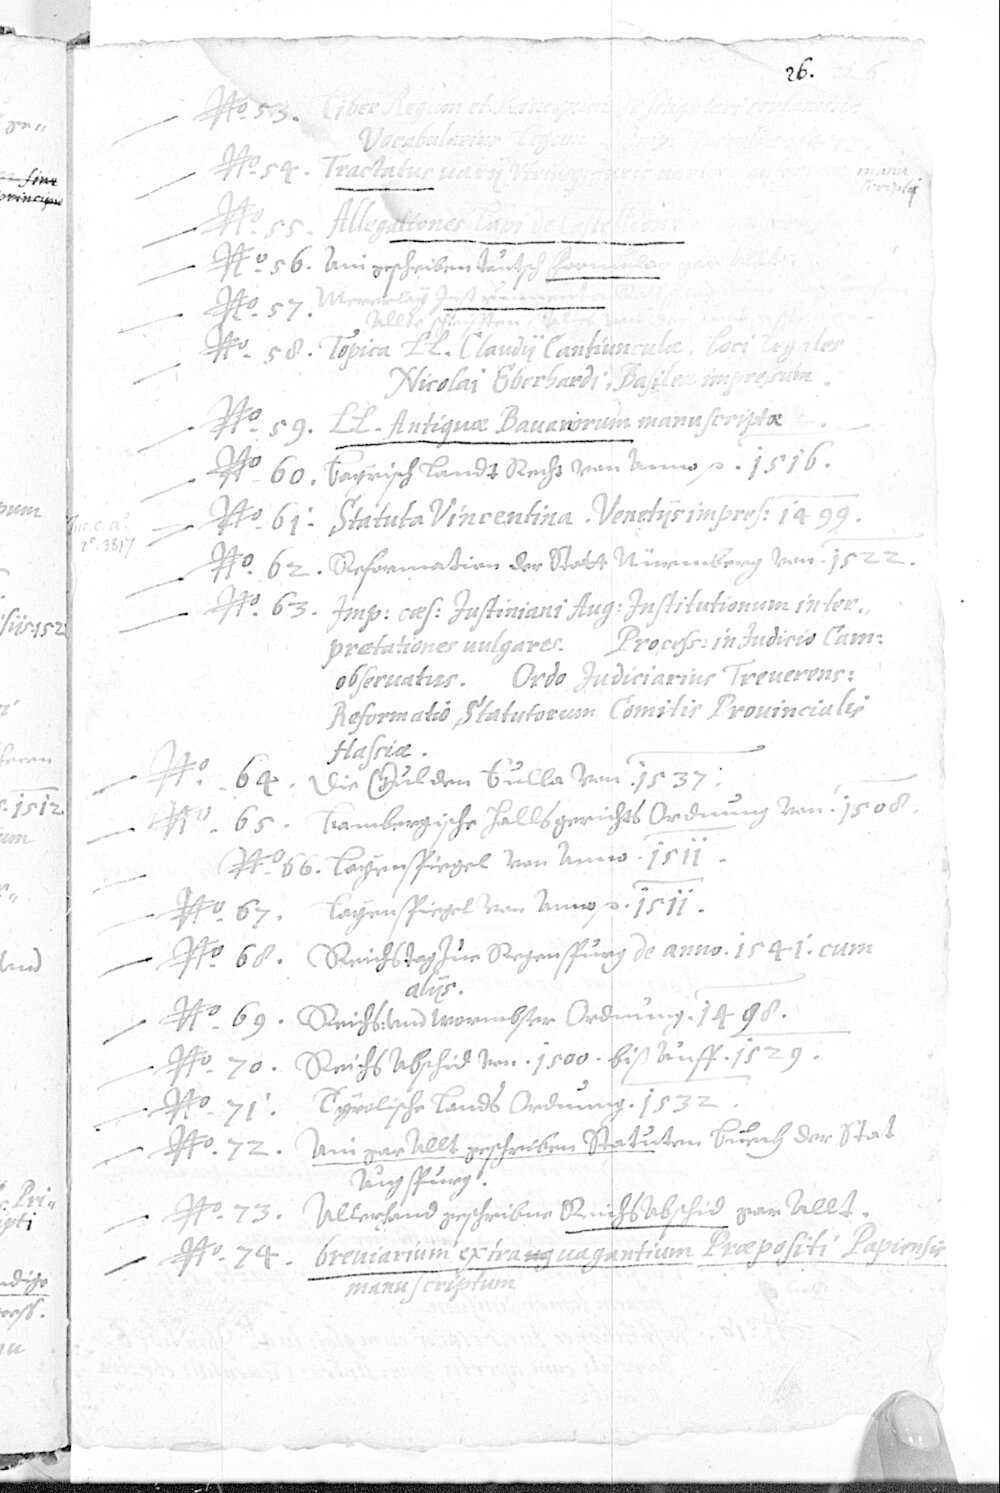 26.
No. 53. Liber Regum et
Vocabularius Legum
No. 54. Tractatus uarij Utriusque Iuris manu
scripti
No. 55. Allegationes Lapi de Castellione
No. 56. Ain geschriben teutsch Formular gar allt
No. 57. Instrument
Allte schrifften
No. 58. Topica LL. Claudij Cantiunculæ. Loci Legales
Nicolai Eberhardi, Basileæ impressum.
No. 59. LL. Antiquæ Bauariorum manuscriptæ
No. 60. Bayrisch Landt Recht von Anno p. 1516.
No. 61. Statuta Vincentina. Venetijs impres: 1499.
Inc. c. a.
2°. 3817
No. 62. Reformation der Statt Nürmberg von. 1522.
No. 63. Imp: cæs: Justiniani Aug: Institutionum inter„
prætationes uulgares. Process: in Judicio Cam:
obseruatus. Ordo Judiciarius Treuerens:
Reformatio Statutorum Comitis Prouincialis
Hassiæ.
No. 64. Die Gulden Bulla von. 1537.
No. 65. Bambergische Hallsgerichts Ordnung von. 1508.
No. 66. Layenspiegel von Anno. 1511.
No. 67. Layenspiegel von Anno p. 1511.
No. 68. Reichstag zue Regenspurg de anno. 1541. cum
alijs.
No. 69. Reichs und wormbser Ordnung. 1498.
No. 70. Reichs Abschid von. 1500. biß auff. 1529.
No. 71. Tyrolische Lands Ordnung. 1532.
No. 72. Ain gar allt geschriben Statuten Buech der Stat
Augspurg.
No. 73. Allerhand geschribne Reichs Abschid gar allt.
No. 74. breuiarium extrauagantium Præpositi Papiensis
manuscriptum